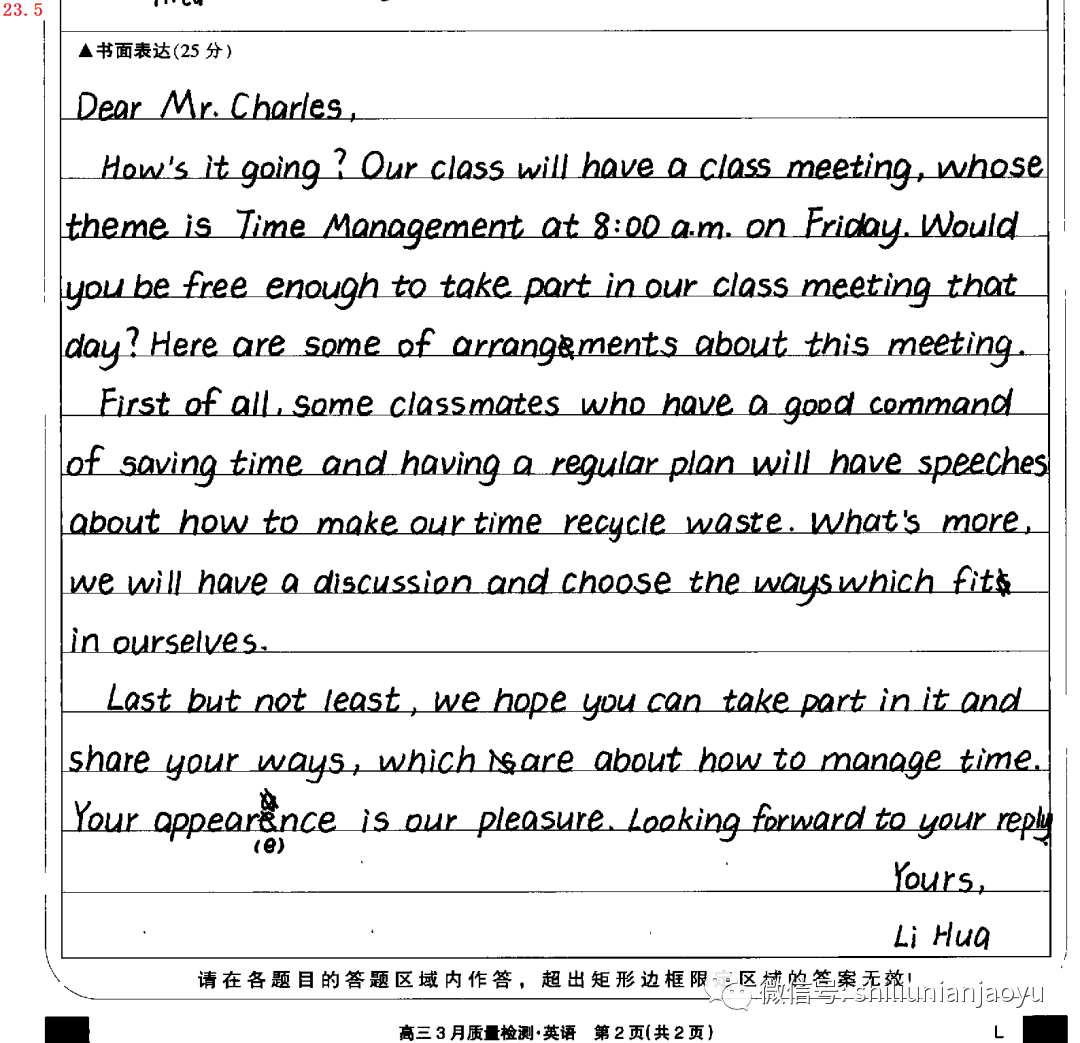 23.5
▲书面表达(25分)
Dear Mr. Charles,
How's it going? Our class will have a class meeting, whose
theme is Time Management at 8:00 a.m. on Friday. Would
you be free enough to take part in our class meeting that
day? Here are some of arrangements about this meeting.
First of all, some classmates who have a good command
of saving time and having a regular plan will have speeches
about how to make our time recycle waste. What's more,
we will have a discussion and choose the ways which fit
in ourselves.
Last but not least, we hope you can take part in it and
share your ways, which are about how to manage time.
Your appearence is our pleasure. Looking forward to your reply
(e)
Yours,
Li Hua
请在各题目的答题区域内作答，超出矩形边框限定区域的答案无效!
微信号: shiliunianjaoyu
高三3月质量检测·英语 第2页(共2页) L